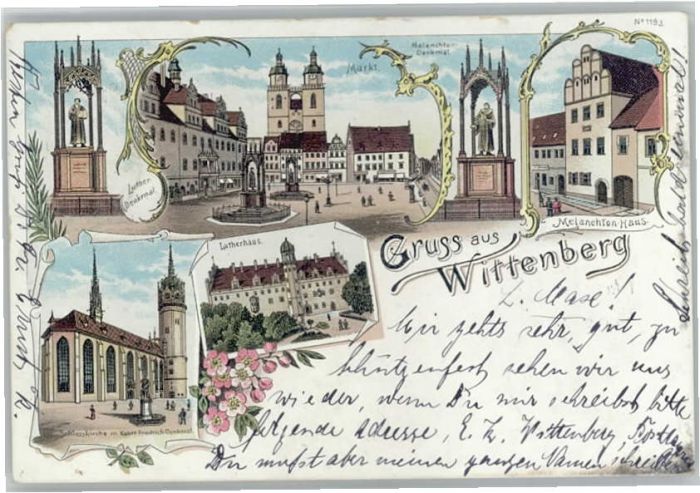 No 1193.
Melanchton-
Denkmal.
Markt.
Luther
Denkmal.
Melanchton-Haus.
Lutherhaus.
Gruss aus
Wittenberg
Schlosskirche m. Kaiser Friedrich-Denkmal.
L. Maxe!
Mir gehts sehr, gut, zu
Schützenfest sehen wir uns
wieder, wenn Du mir schreibst bitte
folgende Adresse, E. K. Wittenberg
Du mußt aber meinen ganzen Namen schreiben
Schreib bald einmal!
Gruß